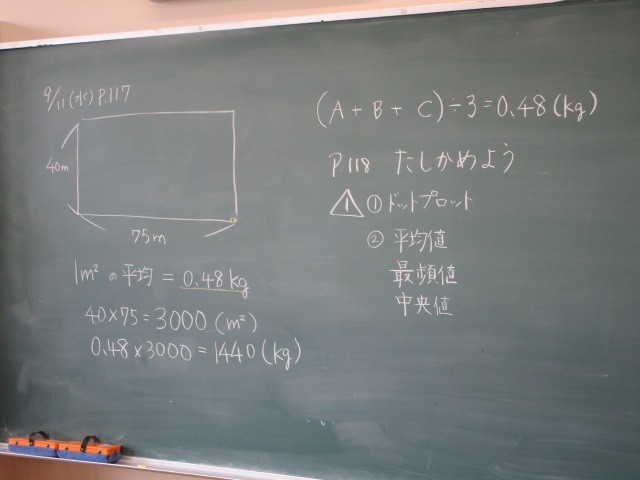 9/11(水) P.117
40m
75m
1m² の平均 = 0.48kg
40×75=3000 (m²)
0.48×3000=1440(kg)
(A+B+C)÷3=0.48(kg)
P.118 たしかめよう
⚠ ① ドットプロット
② 平均値
最頻値
中央値